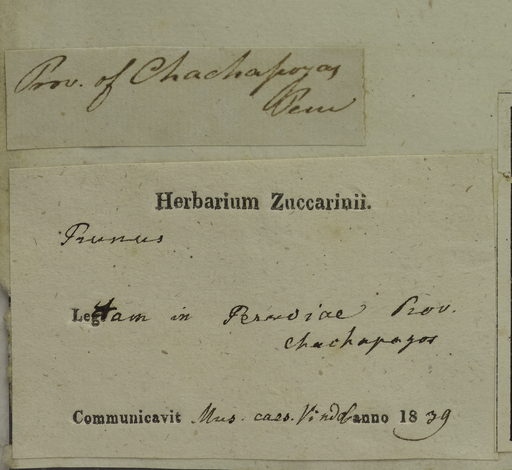 Prov. of Chachapoyas
Peru
Herbarium Zuccarinii.
Prunus
Lectam in Peruviae Prov.
Chachapoyas
Communicavit Mus. caes. Vindob anno 1839